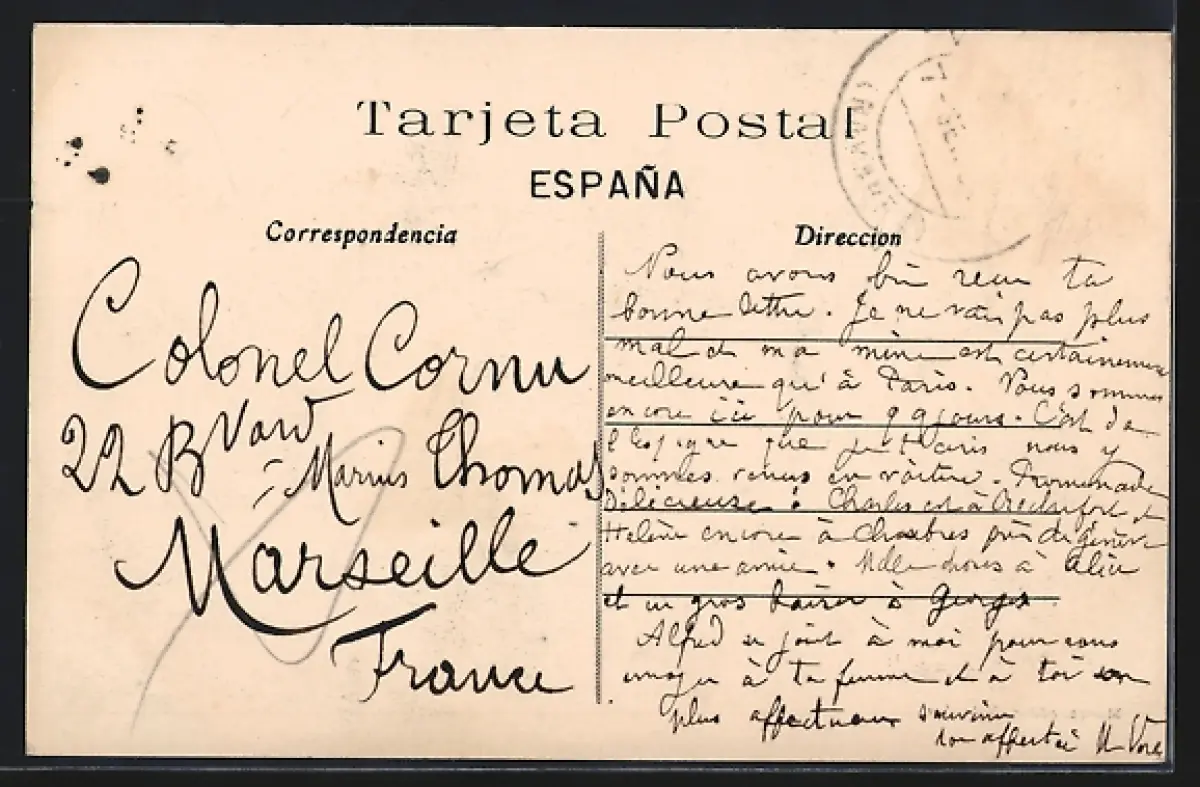 Tarjeta Postal
ESPAÑA
Correspondencia
Direccion
Colonel Cornu
22 Bvard
Marius Thomas
Marseille
France
Nous avons bien reçu ta
bonne lettre. Je ne vais pas plus
mal et ma mine est certainement
meilleure qu'à Paris. Nous sommes
encore ici pour jours. C'est de
que nous y
sommes venus en voiture. Promenade
Délicieuse. Charles est à Rochefort et
Helène encore à près de Genève
avec une amie. à Alice
et un gros baiser à Georges
Alfred se joint à moi pour vous
envoyer à ta femme et à toi son
plus affectueux souvenir